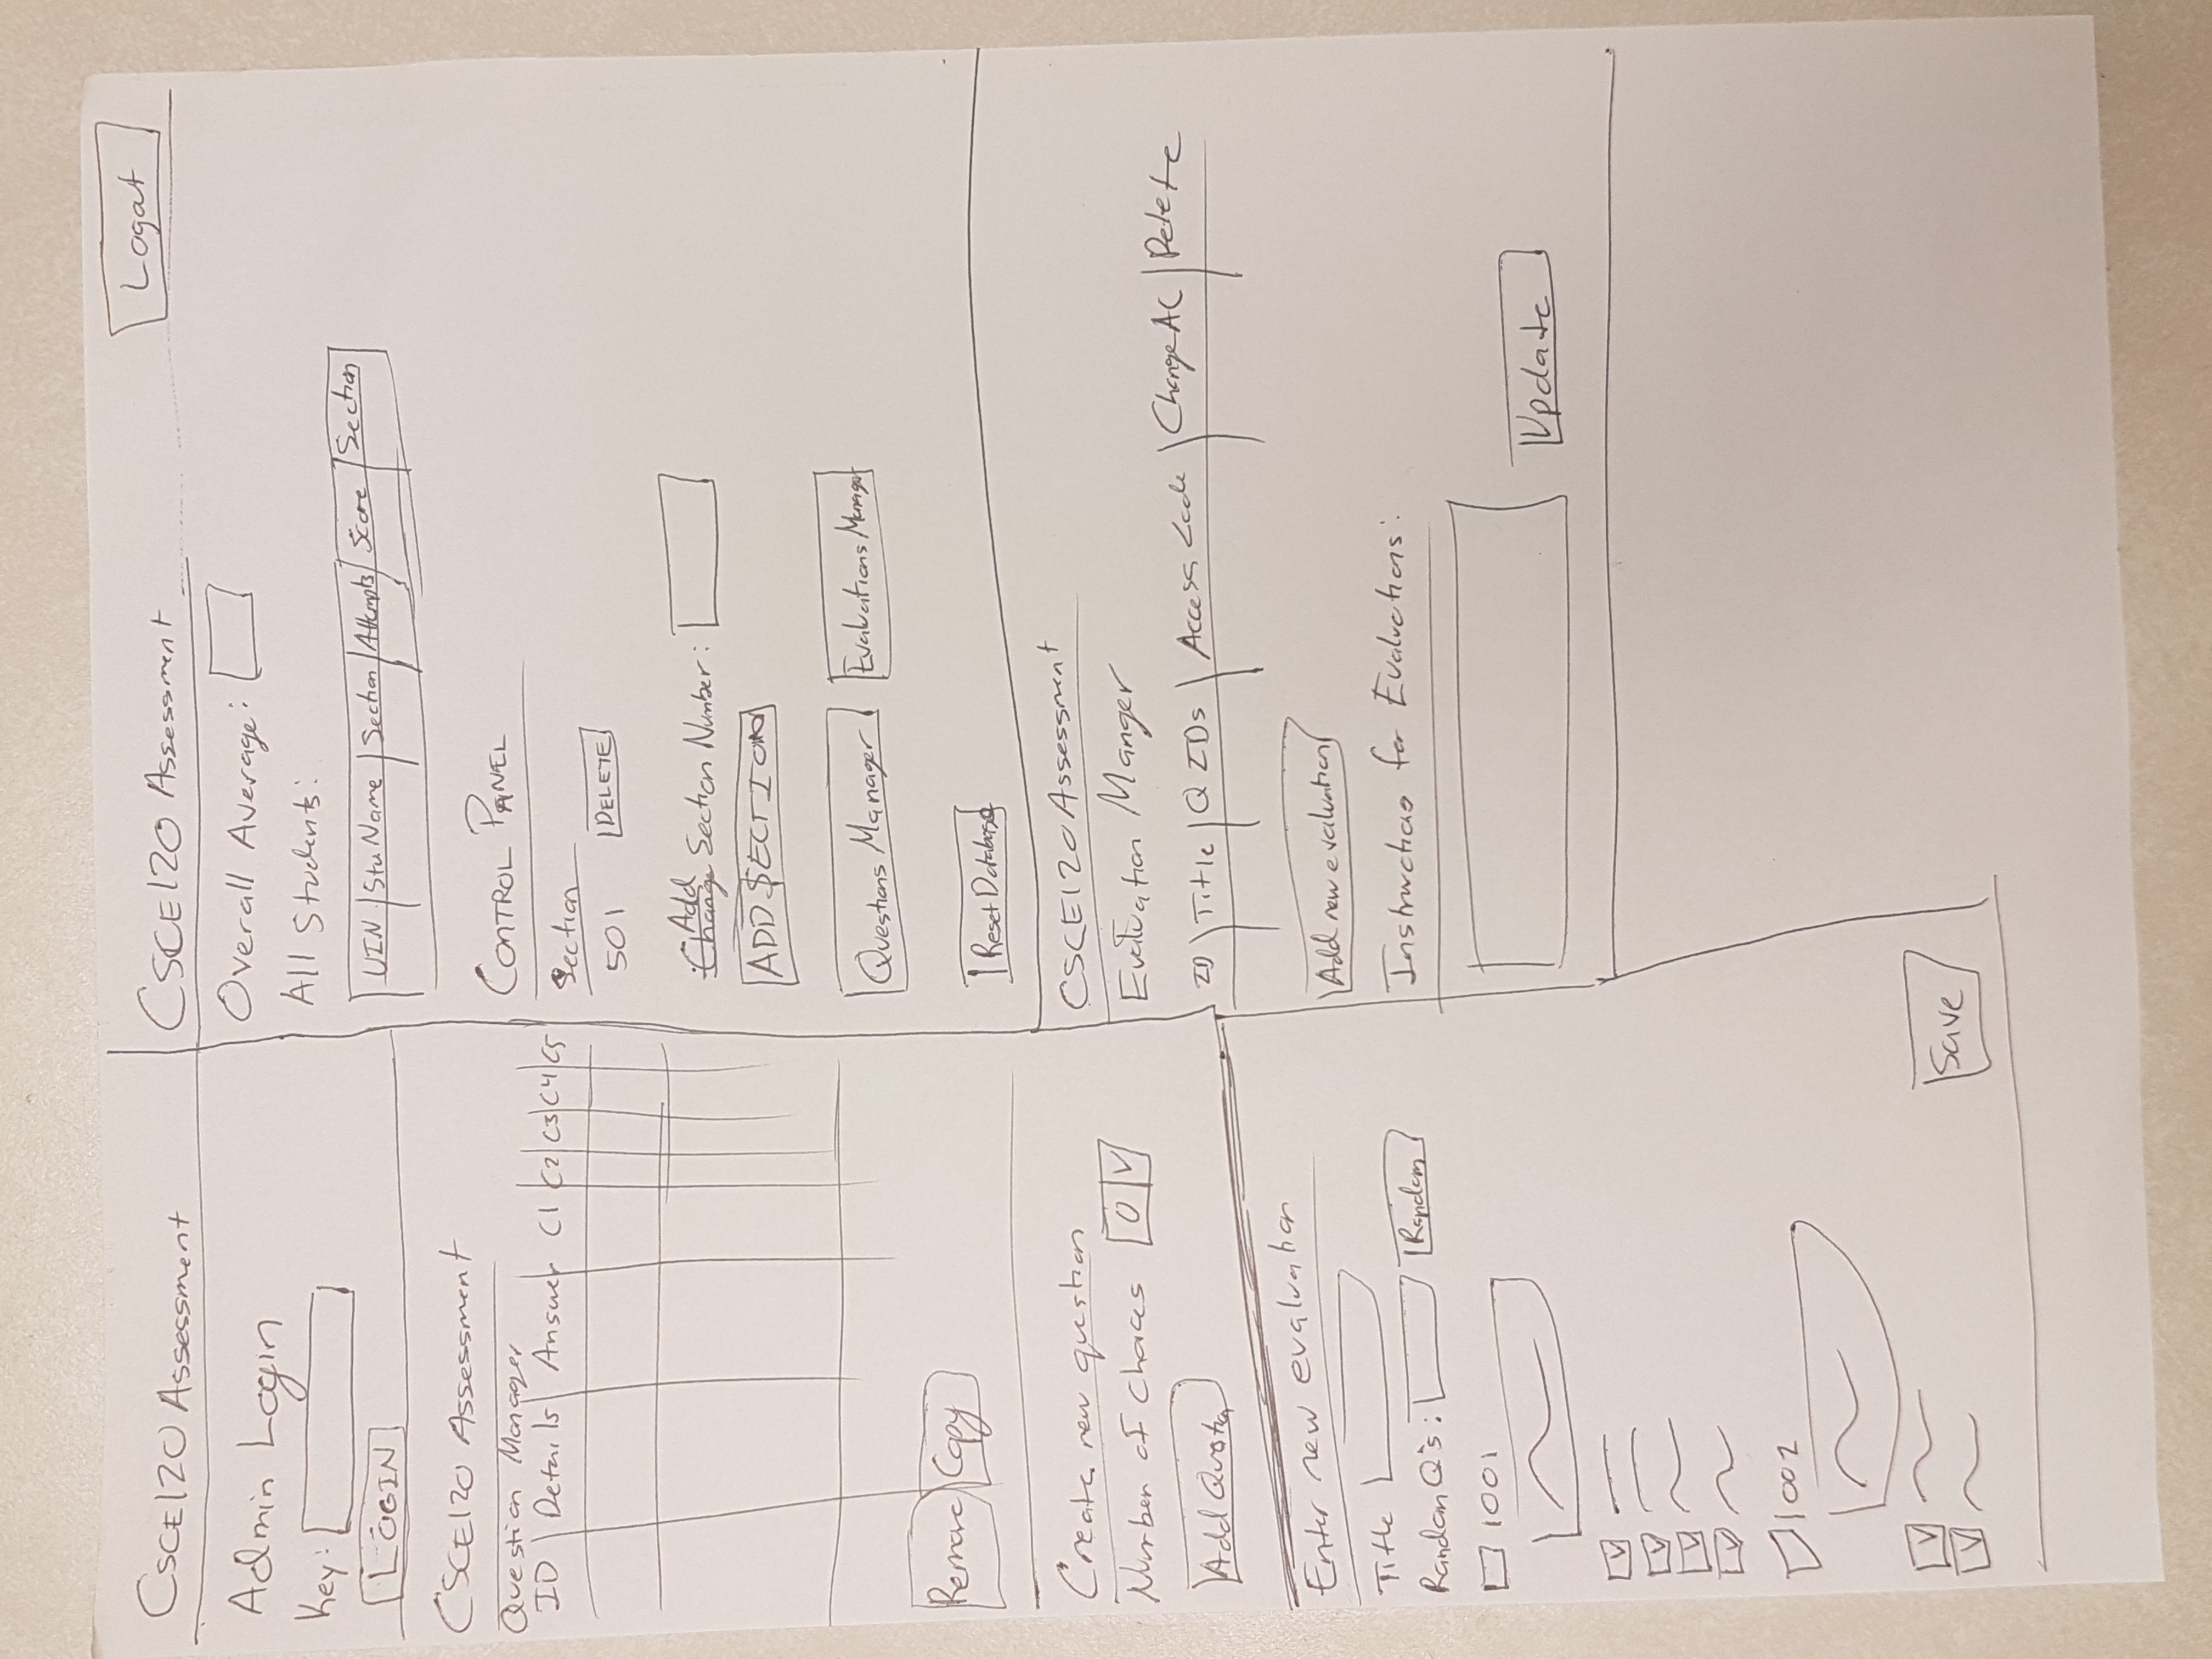 CSCE120 Assessment
Admin Login
Key:
LOGIN
CSCE120 Assessment
Question Manager
ID Details Answer C1 C2 C3 C4 C5
Remove Copy
Create new question
Number of Choices 0
Add
Enter new evaluation
Title
Random Q's: Random
1001
1002
Save
Logout
CSCE120 Assessment
Overall Average:
All Students:
UIN Stu Name Section Attempts Score Section
CONTROL PANEL
Section
501 DELETE
Add
Change Section Number:
ADD SECTION
Questions Manager Evaluations Manager
Reset Database
CSCE120 Assessment
Evaluation Manger
ID Title Q IDs Access Code Change AC Delete
Add new evaluation
Instructions for Evaluations:
Update